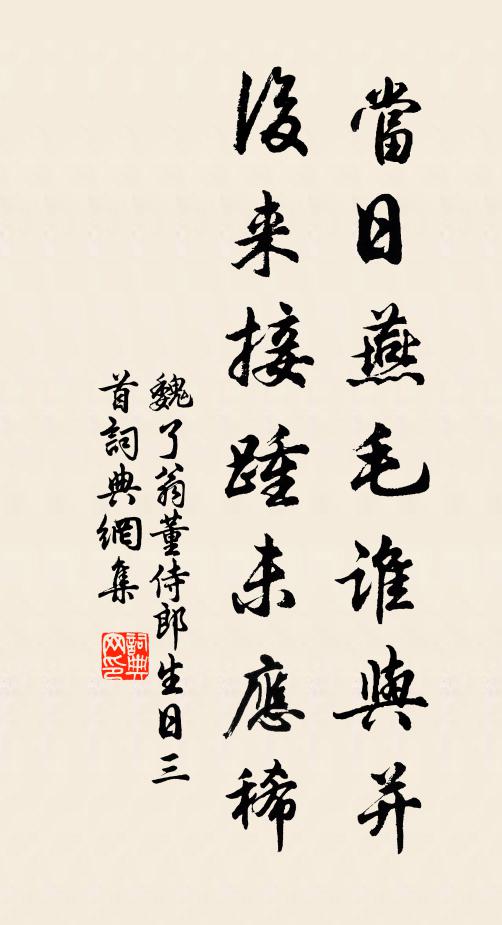 當日燕毛谁與并
後来接踵未應稀
魏了翁董侍郎生日三
首詞典網集
詞典网印